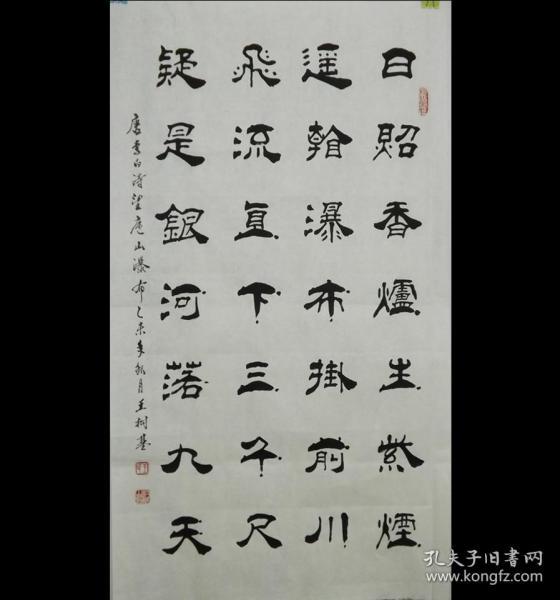 日照香爐生紫煙
遥看瀑布掛前川
飛流直下三千尺
疑是銀河落九天
唐李白诗望廬山瀑布乙未年秋月王树基
孔夫子旧书网
www.kongfz.com